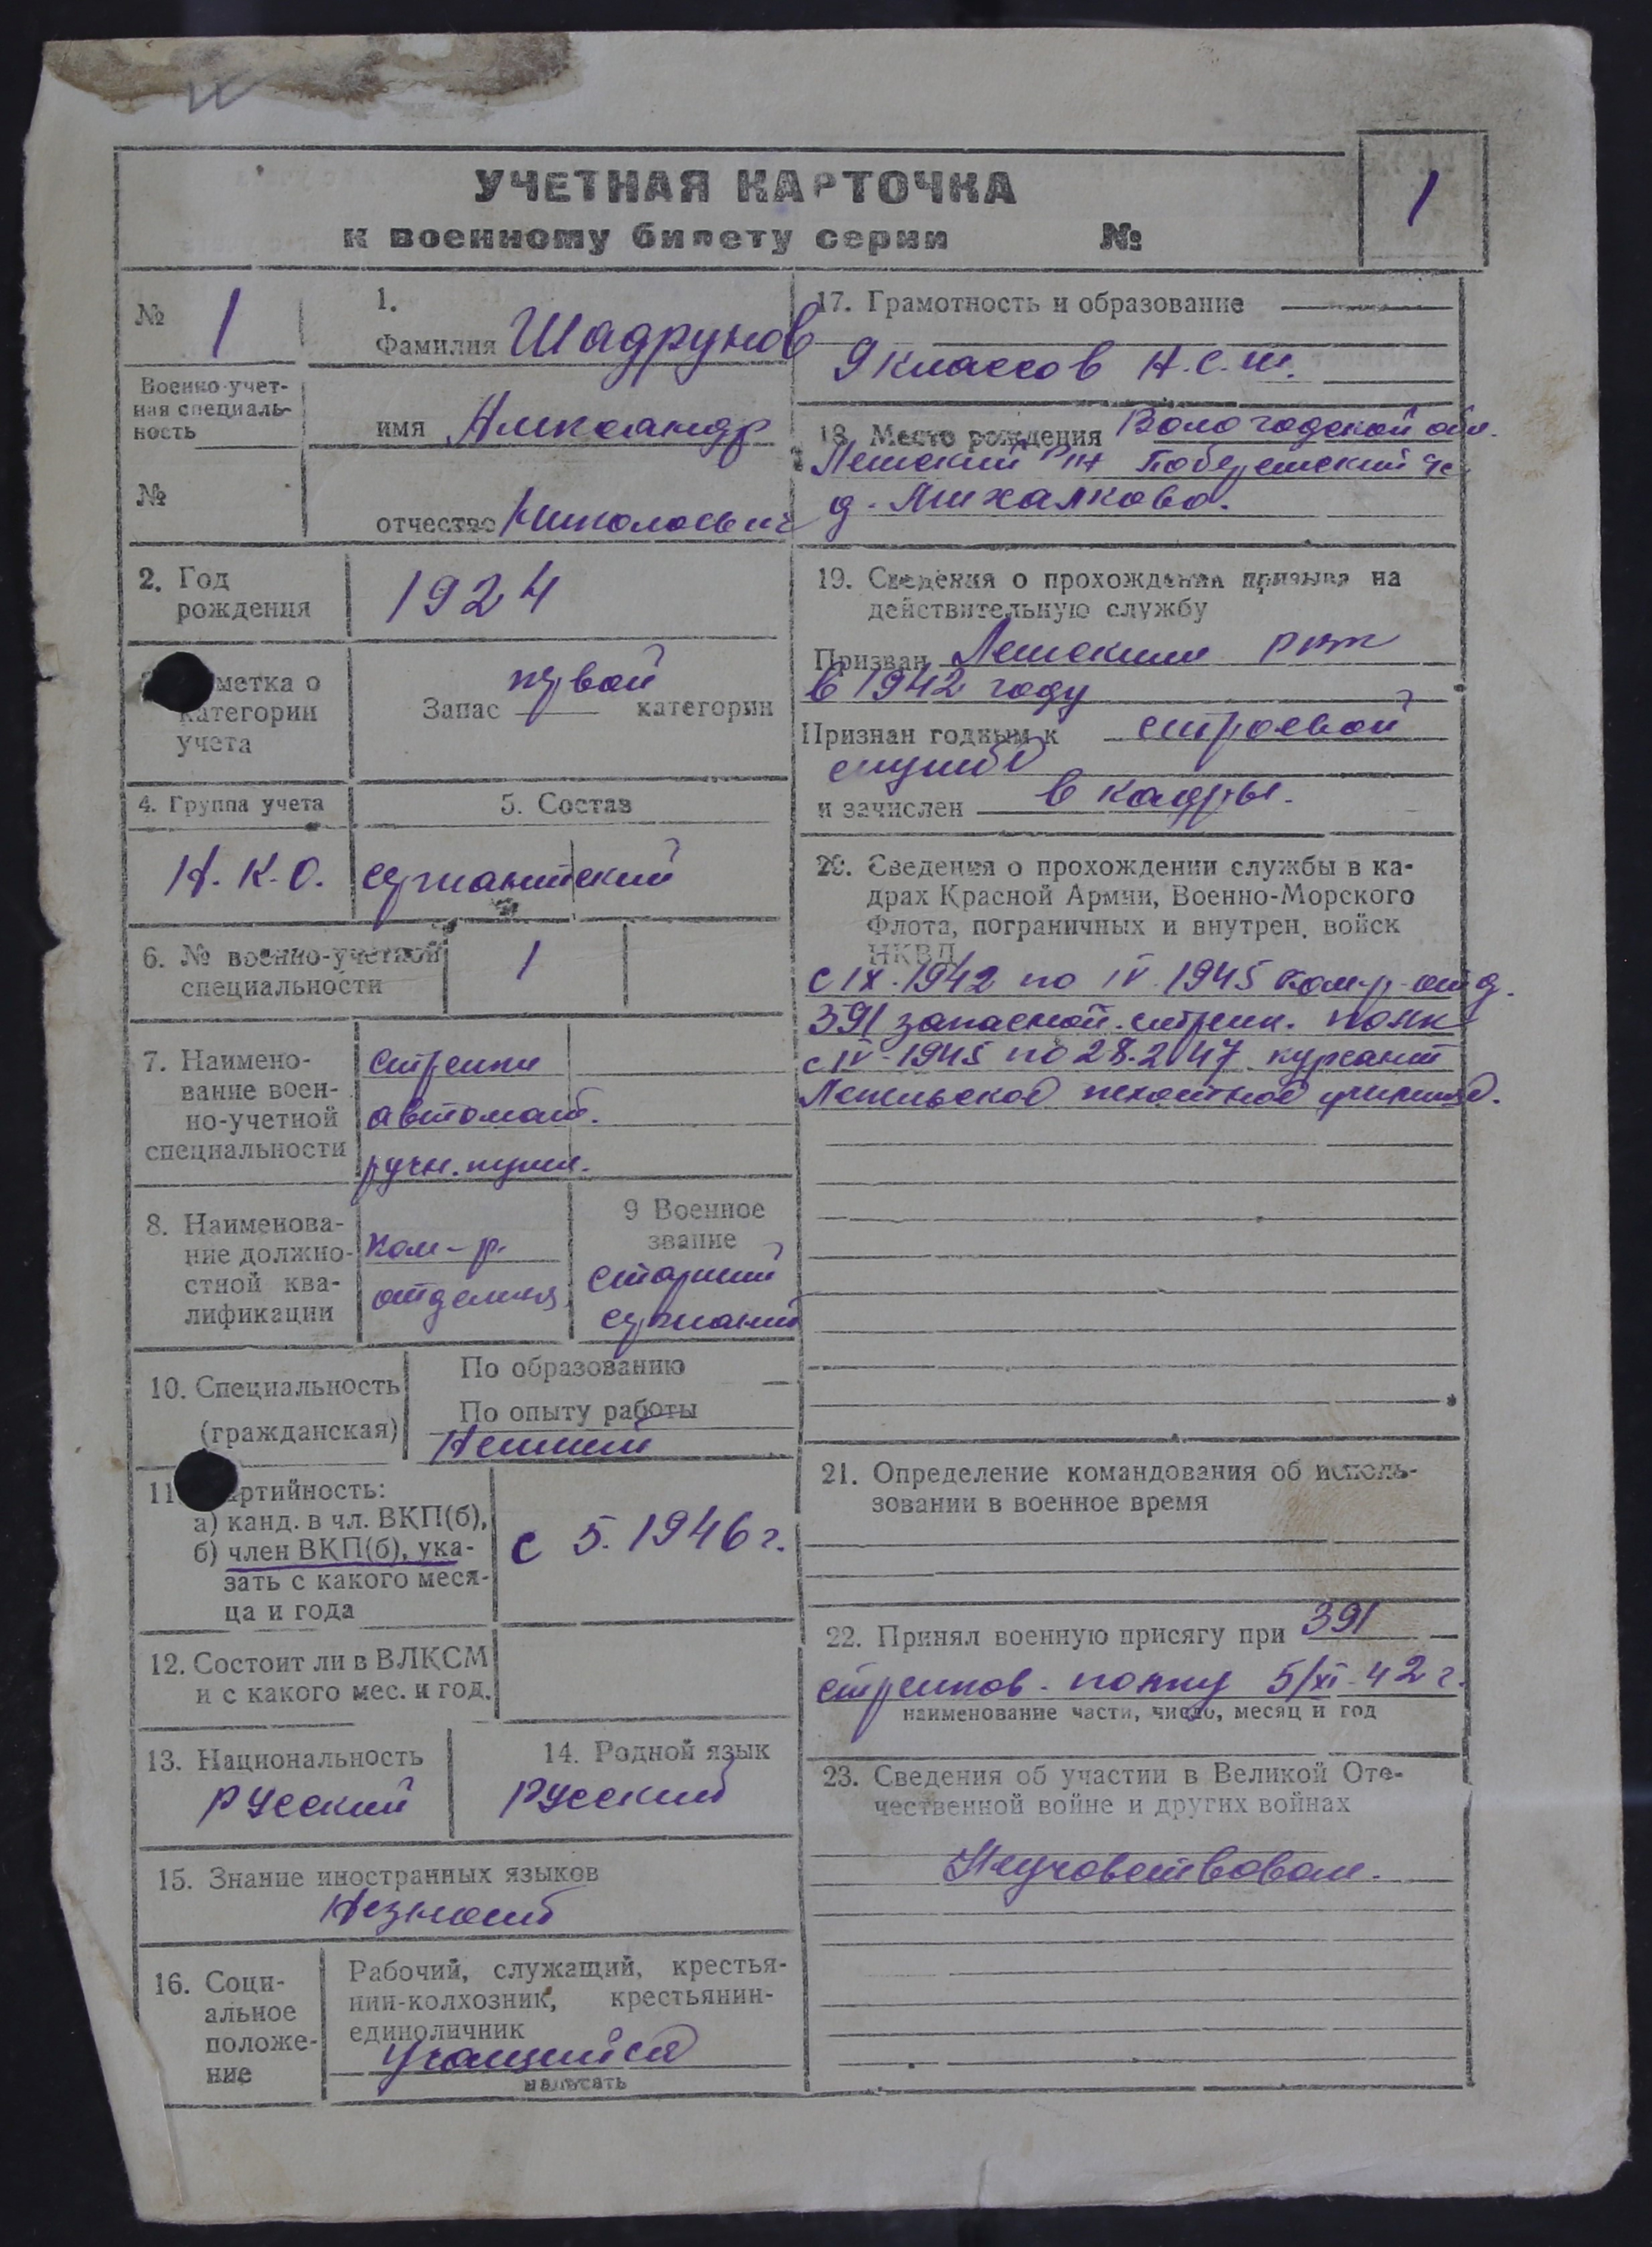 УЧЕТНАЯ КАРТОЧКА
к военному билету серии №
1
№ 1
Военно-учет-
ная специаль-
ность
№
1.
Фамилия Шадрунов
имя Александр
отчество Николаевич
2. Год
рождения
1924
метка о
категории
учета
Запас первой категории
4. Группа учета
Н.К.О.
5. Состав
сержантский
6. № военно-учетной
специальности
1
7. Наимено-
вание воен-
но-учетной
специальности
стрелки
автомат.
ручн. пулем.
8. Наименова-
ние должно-
стной ква-
лификации
ком-р.
отделения
9 Военное
звание
старший
сержант
10. Специальность
(гражданская)
По образованию —
По опыту работы
11 артийность:
а) канд. в чл. ВКП(б),
б) член ВКП(б), ука-
зать с какого меся-
ца и года
с 5. 1946 г.
12. Состоит ли в ВЛКСМ
и с какого мес. и год.
13. Национальность
Русский
14. Родной язык
Русский
15. Знание иностранных языков
Незнает
16. Соци-
альное
положе-
ние
Рабочий, служащий, крестья-
нин-колхозник, крестьянин-
единоличник
учащийся
написать
17. Грамотность и образование
9 классов Н.С.Ш.
18. Место рождения Вологодской обл.
д. Михалково.
19. Сведения о прохождении призыва на
действительную службу
Призван
в 1942 году
Признан годным к строевой
службе
и зачислен в кадры.
20. Сведения о прохождении службы в ка-
драх Красной Армии, Военно-Морского
Флота, пограничных и внутрен. войск
НКВД
с IX. 1942 по IV. 1945 ком-р отд.
391 запасной. стрелк. полк
с IV-1945 по 28.2.47 курсант
пехотное училище.
21. Определение командования об исполь-
зовании в военное время
22. Принял военную присягу при 391
стрелков. полку 5/XI-42 г.
наименование части, число, месяц и год
23. Сведения об участии в Великой Оте-
чественной войне и других войнах
Неучаствовал.